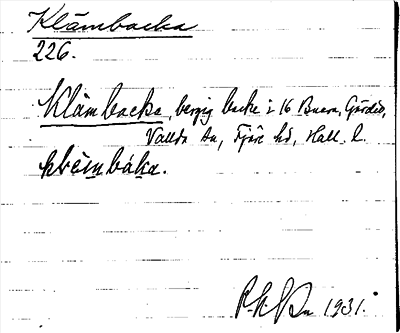 Klämbacka
226.
Klämbacka, bergig backe i 16 Buera, Gårded,
Vallda sn, Fjäre hd, Hall. l.
klèm bàka.
1931.